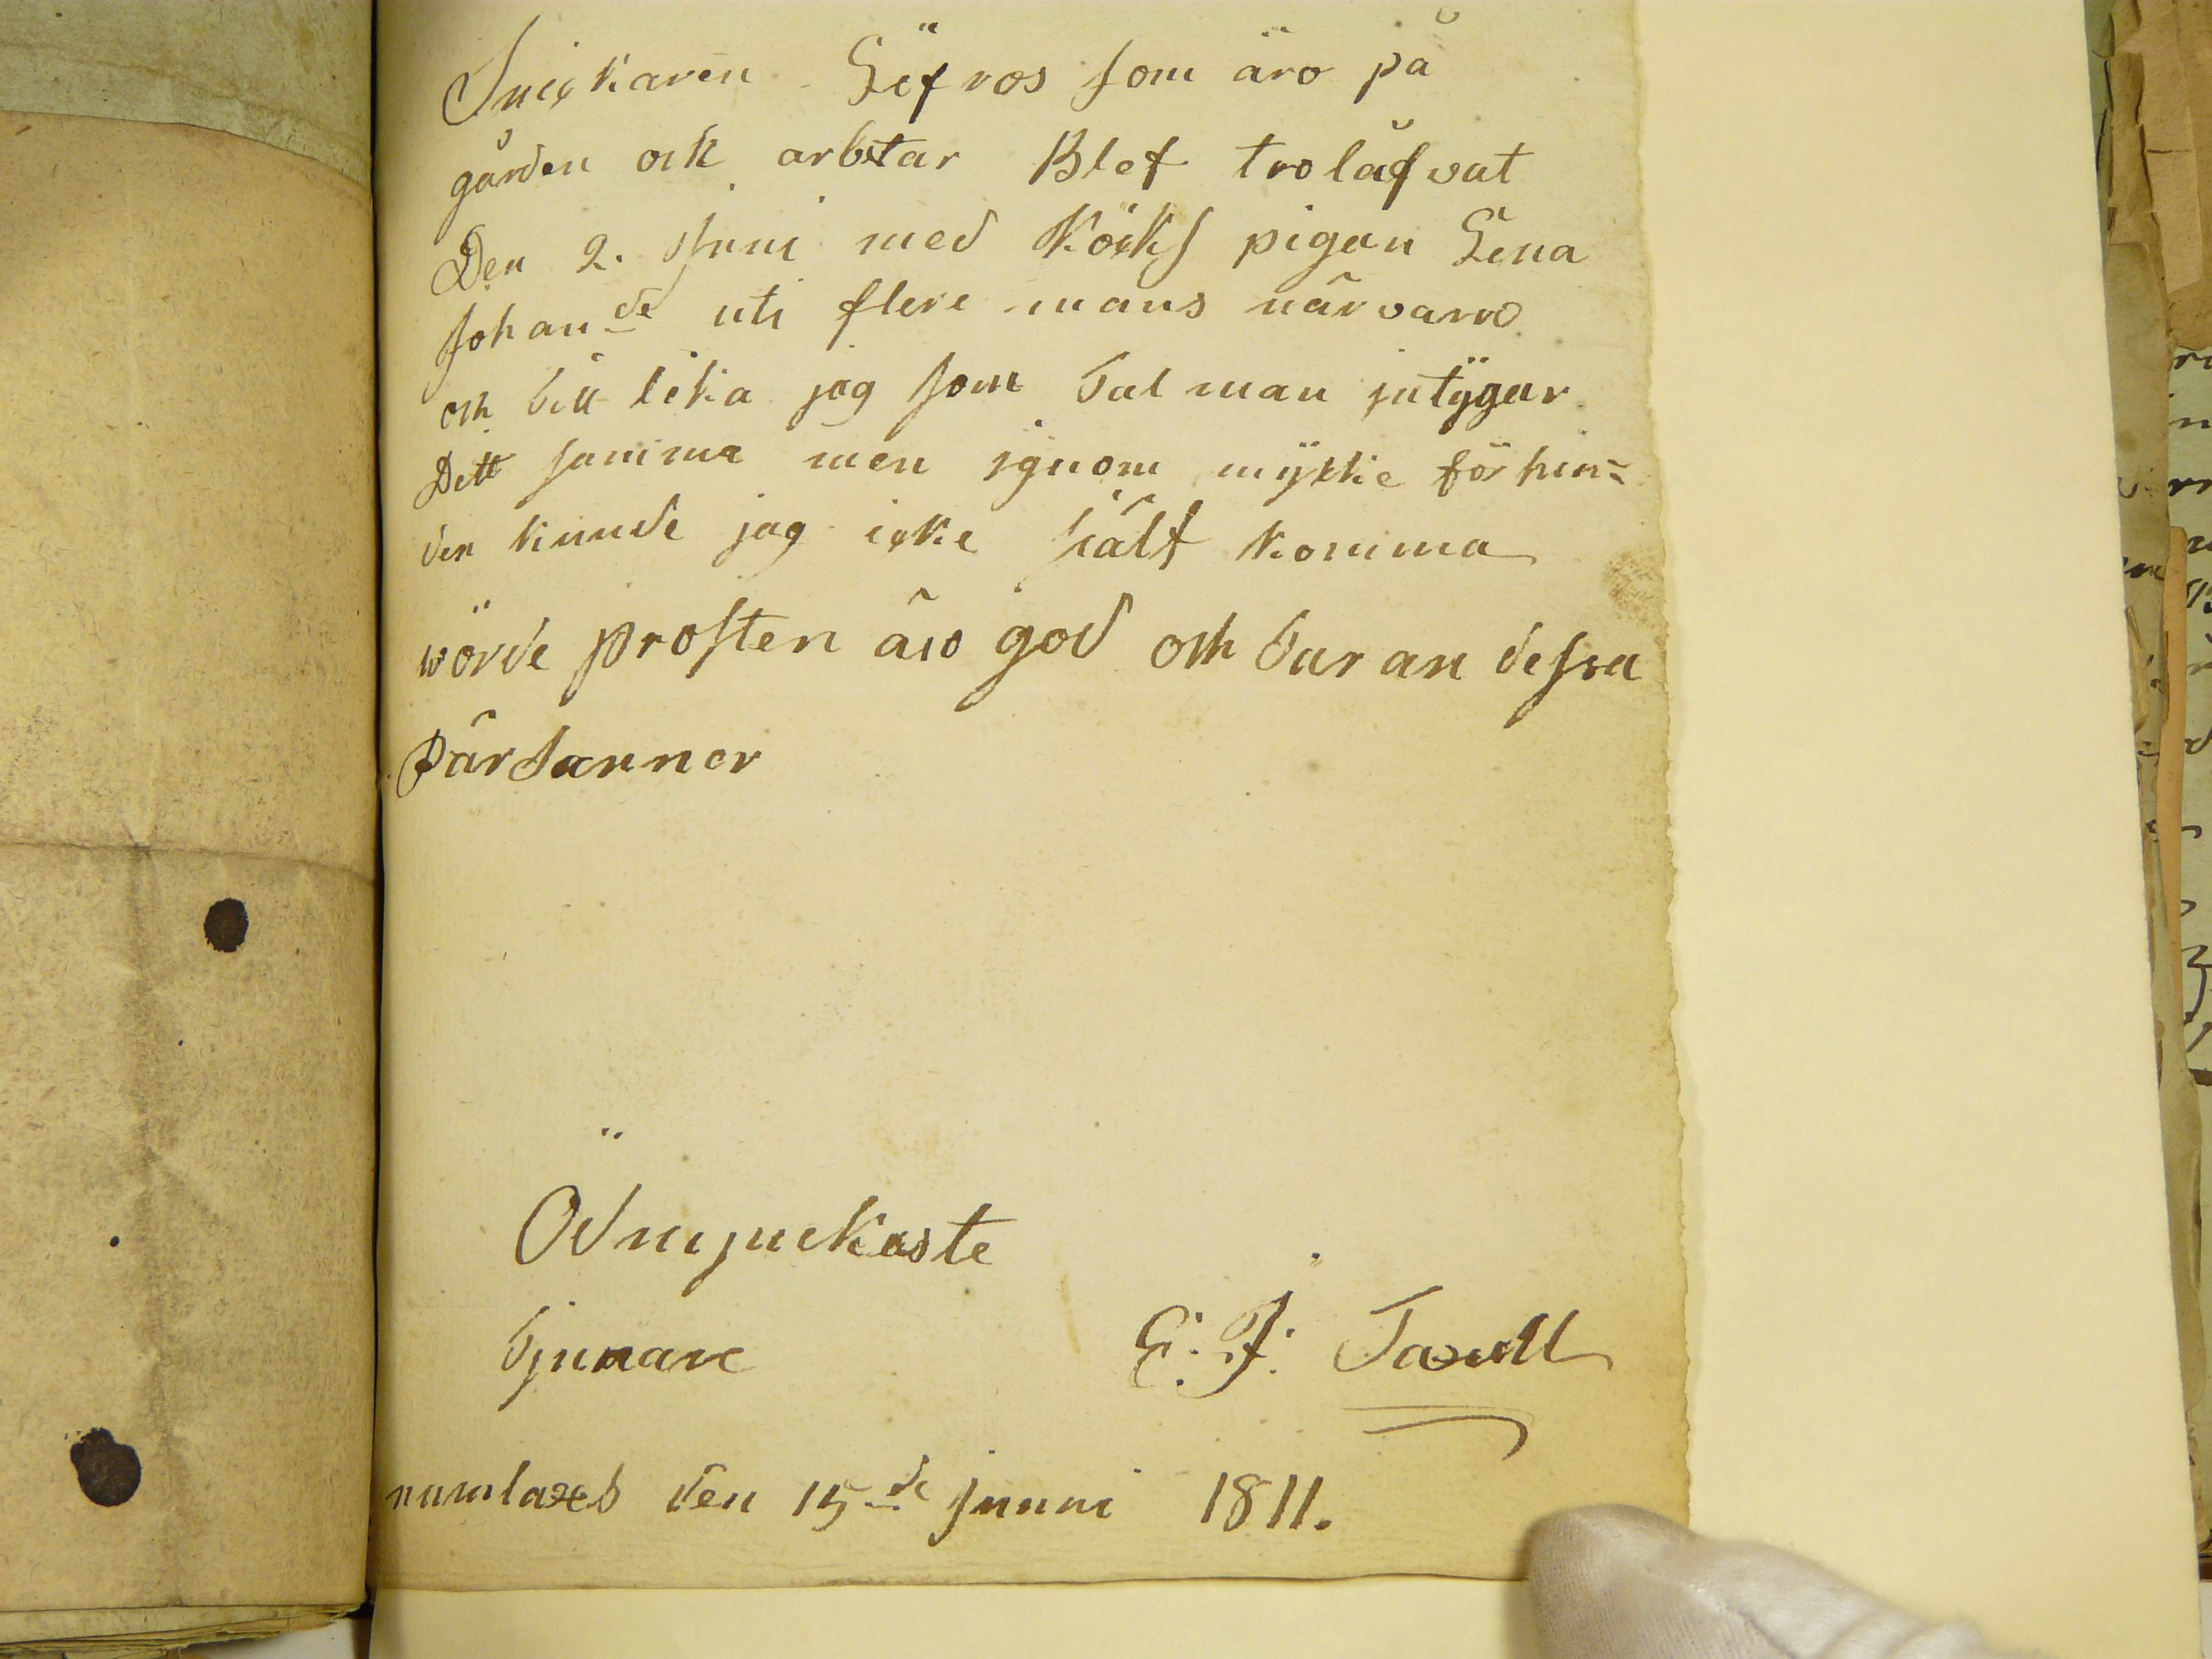 Snickaren Léf ros som äro på
gården ock arbetar Blef trolåfvat
Den 2. Juni med Köcks pigan Lena
Johan de uti flere mans närvaro
och till lika jag som Talman intÿgar
Dett samma men ignom mÿkkie förhin=
der kunde jag icke siälf komma
wörde prosten äro god och tar an dessa
Pärsanner
Ödmjuckaste
tjenare E. J. Tavell
den 15 de junni 1811.